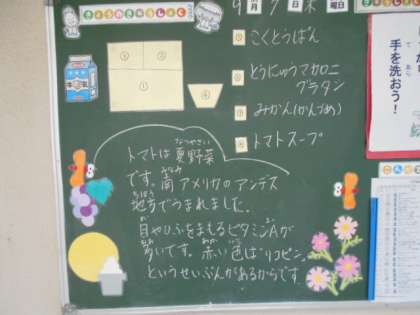 きょうのきゅうしょく
9月7日木曜日
① こくとうぱん
② とうにゅうマカロニ
グラタン
③ みかん(かんづめ)
④ トマトスープ
③ ②
① ④
トマトは夏野菜
なつやさい
です。南アメリカのアンデス
みなみ
地方でうまれました。
ちほう
目やひふをまもるビタミンAが
多いです。赤い色はリコピン
というせいぶんがあるからです。
手を洗おう!
て あら